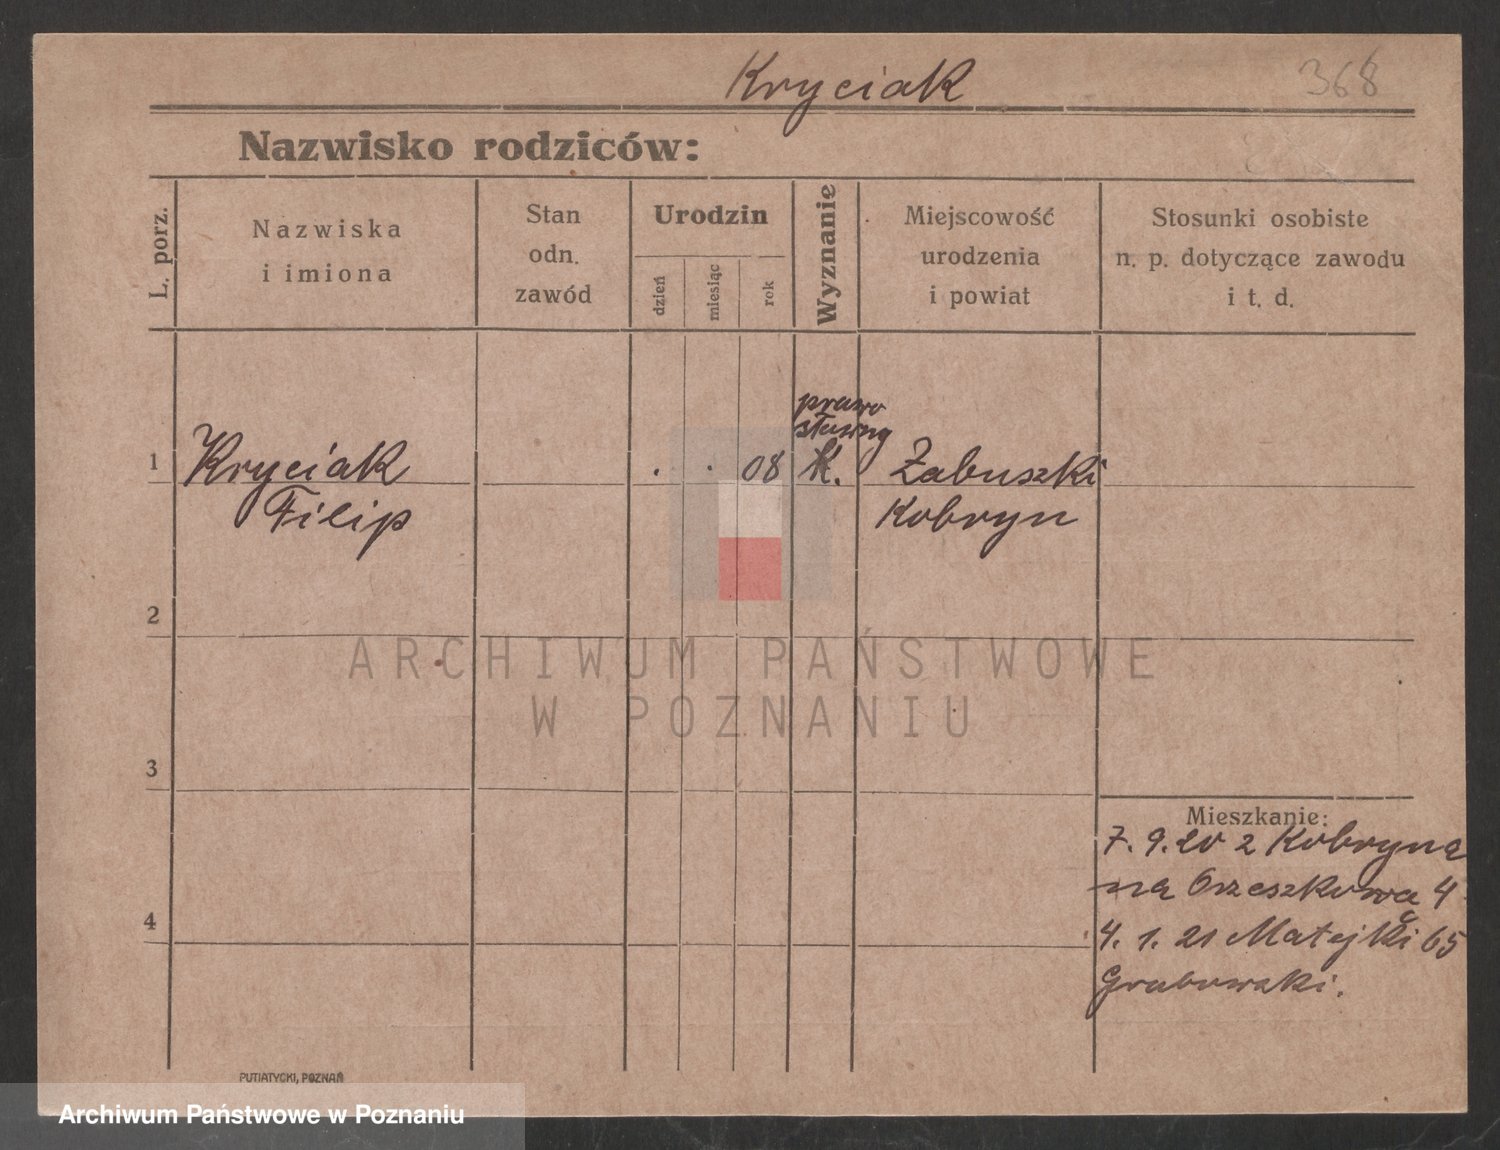 Kryciak
368
Nazwisko rodziców:
L. porz.
Nazwiska
i imiona
Stan
odn.
zawód
Urodzin
dzień
miesiąc
rok
Wyznanie
Miejscowość
urodzenia
i powiat
Stosunki osobiste
n. p. dotyczące zawodu
i t. d.
1
Kryciak
Filip
. . 08
prawo
sławny
k.
Żabuszki
Kobryn
2
3
4
Mieszkanie:
7. 9. 20 z Kobryna
na Orzeszkowa 4
4. 1. 21 Matejki 65
Grabowski.
PUTIATYCKI, POZNAŃ
ARCHIWUM PAŃSTWOWE
W POZNANIU
Archiwum Państwowe w Poznaniu